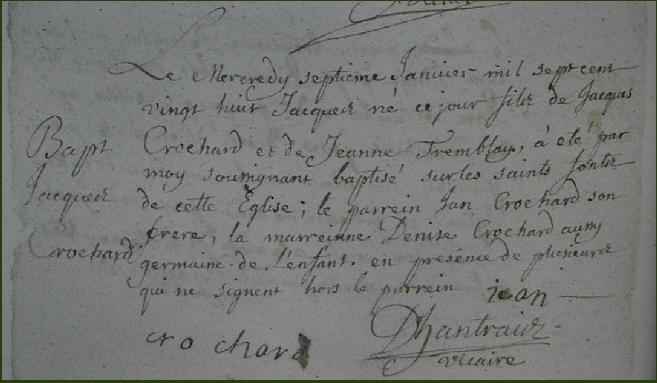 Le Mercredy septieme Janvier mil sept cent
vingt huit Jacques né ce jour fils de Jacques
Bapt
Jacques
Crochard
Crochard et de Jeanne Tremblay, à eté par
moy soussignant baptisé sur les saints fonts
de cette Eglise; le parrein Jan Crochard son
frere, la marreinne Denise Crochard aussy
germaine de L'enfant. en présence de plusieurs
qui ne signent hors le parrein jean
cro chard
Dhantraix
vicaire